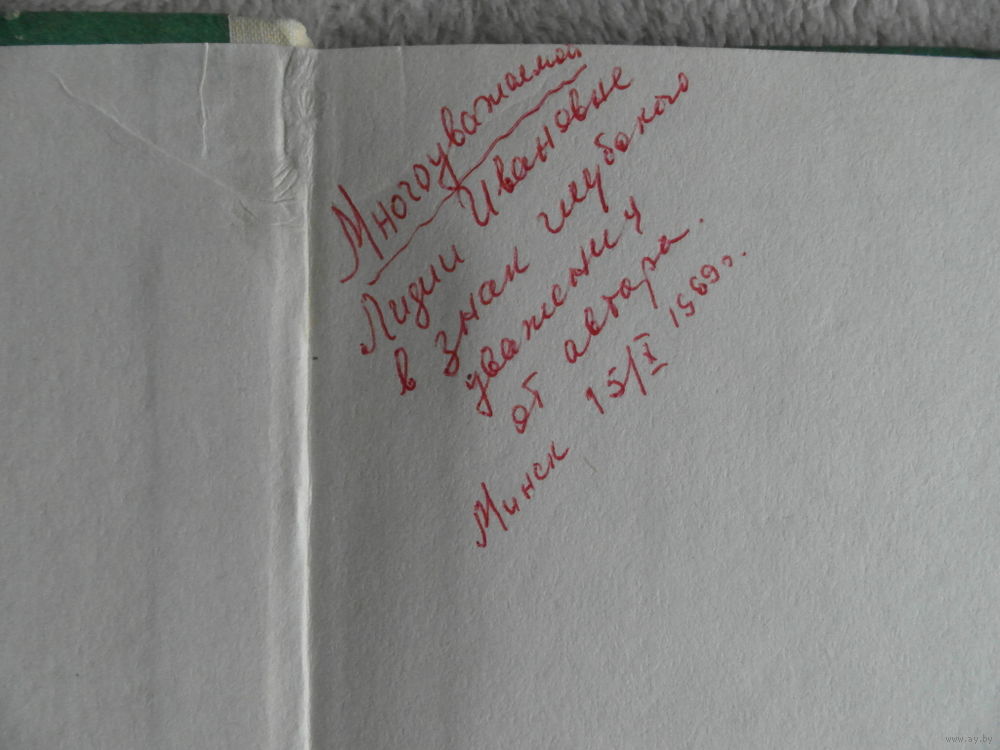 Многоуважаемой
Лидии Ивановне
в знак глубокого
уважения
от автора.
Минск 15/X 1969г.
www.ay.by